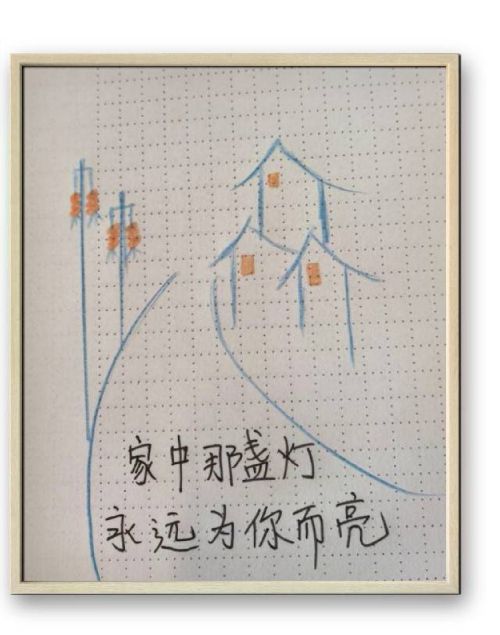 家中那盏灯
永远为你而亮